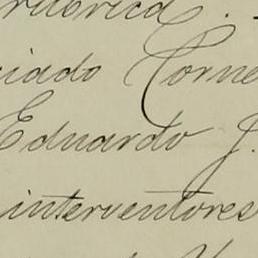 ciado Corne
Eduardo J.
interventores